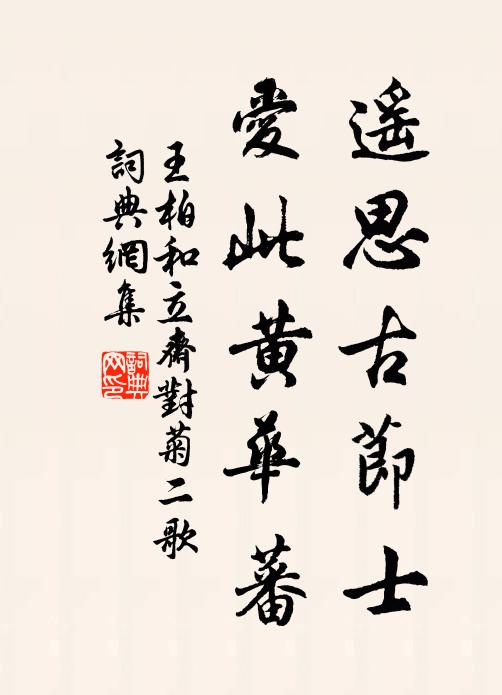 遥思古節士
愛此黄華蕃
王柏和立齋對菊二歌
詞典網集
詞典网印